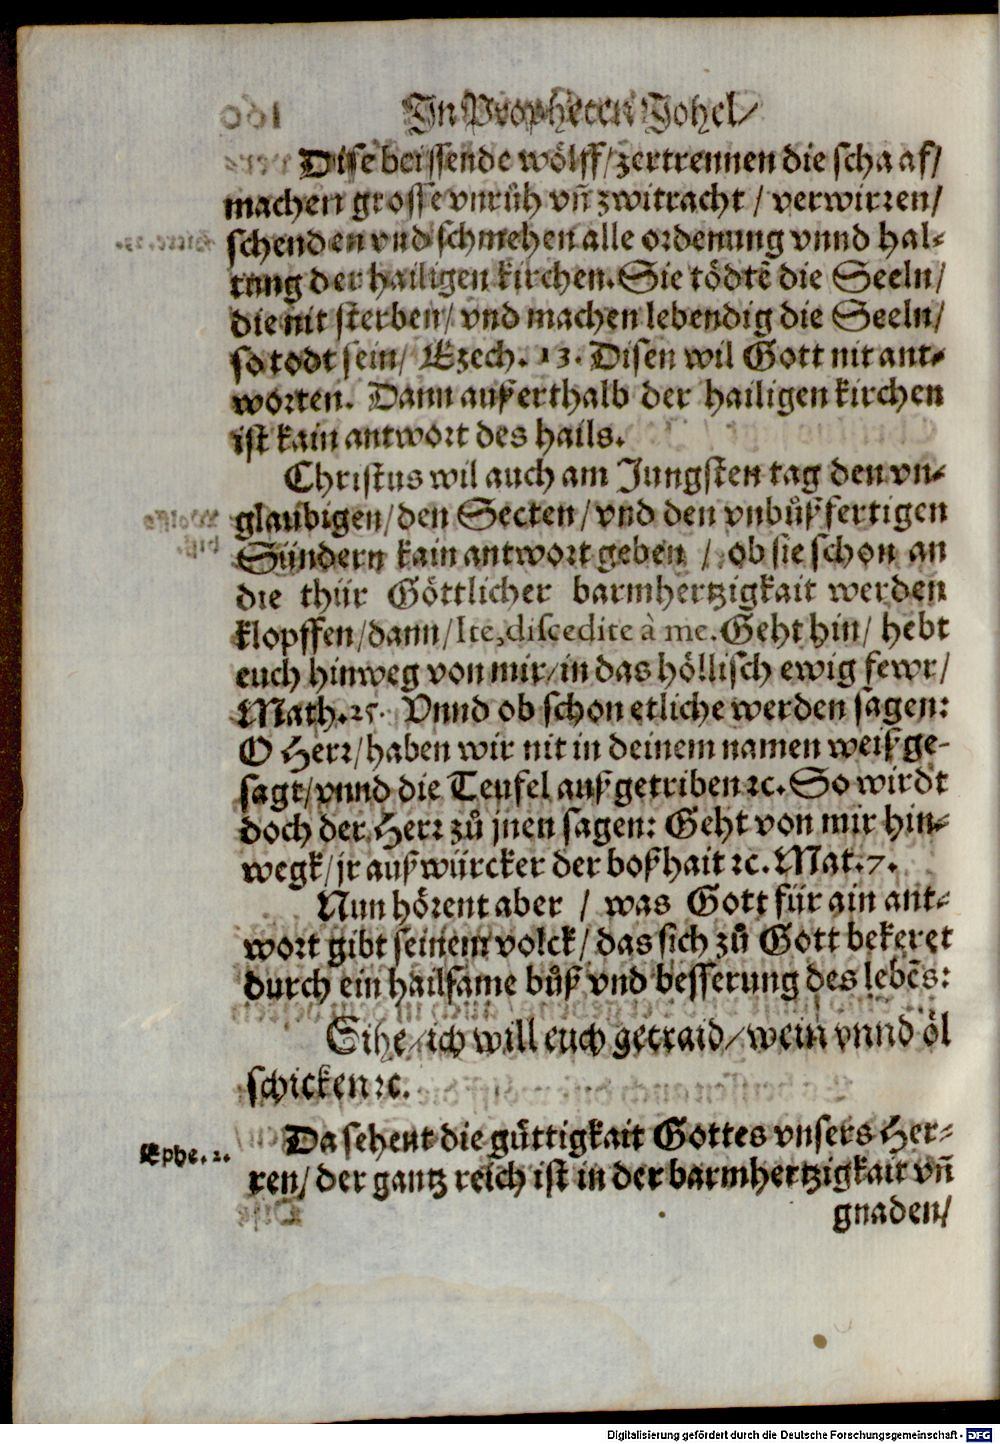 In Propheten Johel/
Dise beissende wölff/zertrennen die schaaf/
machen grosse vnrůh vñ zwitracht / verwirren/
schenden vnd schmehen alle ordenung vnnd hal-
tung der hailigen kirchen. Sie tödtē die Seeln/
die nit sterben/ vnd machen lebendig die Seeln/
so todt sein/ Ezech. 13. Disen wil Gott nit ant-
worten. Dann außerthalb der hailigen kirchen
ist kain antwort des hails.
Christus wil auch am Jungsten tag den vn-
glaubigen/den Secten/vnd den vnbůßfertigen
Sündern kain antwort geben / ob sie schon an
die thür Göttlicher barmhertzigkait werden
klopffen/dann/Ite, discedite à me. Geht hin/ hebt
euch hinweg von mir/in das höllisch ewig fewr/
Math. 25. Vnnd ob schon etliche werden sagen:
O Herr/haben wir nit in deinem namen weißge-
sagt/vnnd die Teufel außgetriben ꝛc. So wirdt
doch der Herr zů jnen sagen: Geht von mir hin-
wegk/jr außwürcker der boßhait ꝛc. Mat. 7.
Nun hörent aber / was Gott für ain ant-
wort gibt seinem volck/das sich zů Gott bekeret
durch ein hailsame bůß vnd besserung des lebēs:
Sihe/ich will euch getraid/wein vnnd öl
schicken ꝛc.
Ephe. 2.
Da sehent die güttigkait Gottes vnsers Her-
ren/der gantz reich ist in der barmhertzigkait vñ
gnaden/
Digitalisierung gefördert durch die Deutsche Forschungsgemeinschaft - DFG